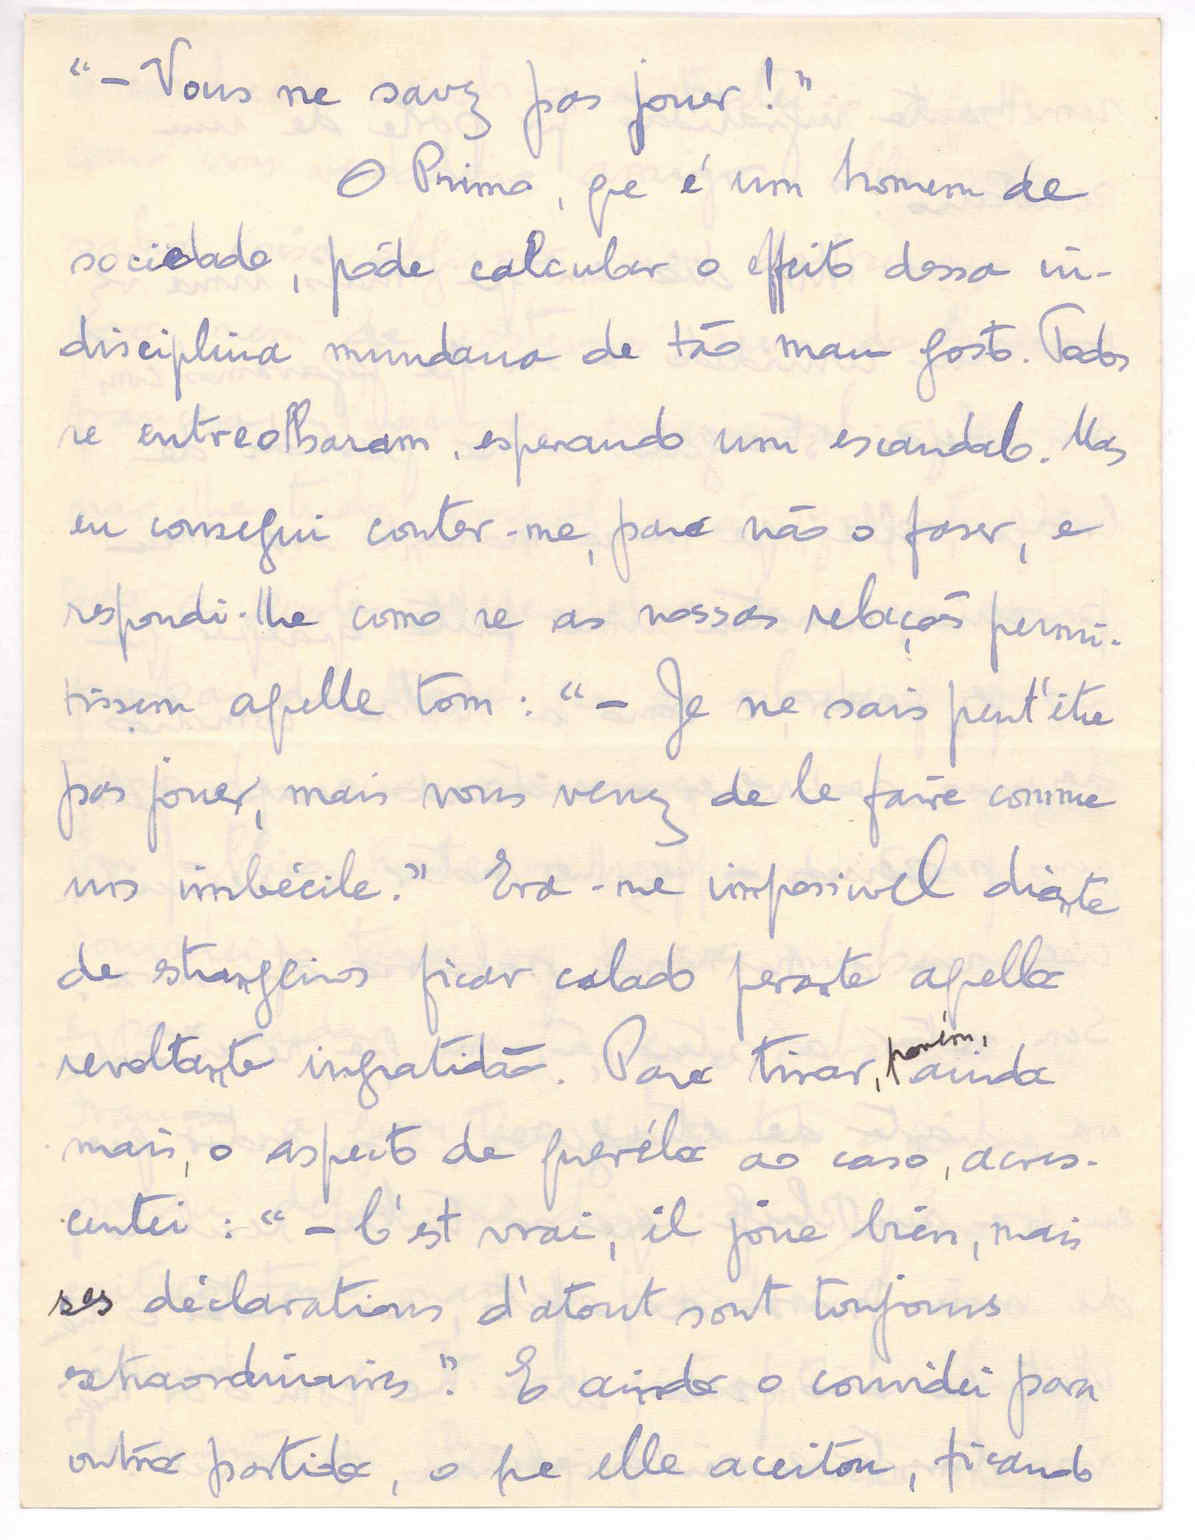 “– Vous ne savez pas jouer ! ”
O Primo, qe é um homem de
sociedade, póde calcular o effeito dessa in-
disciplina mundana de tão mau gosto. Todos
se entreolharam, esperando um escandalo. Mas
eu consegui conter-me, para não o fazer, e
respondi-lhe como se as nossas relações permi-
tissem aqelle tom : “– Je ne sais peut'être
pas jouer, mais vous venez de le faire comme
un imbécile.” Era-me impossivel diante
de estrangeiros ficar calado perante aqella
revoltante ingratidão. Para tirar, porém, ainda
mais, o aspecto de queréla ao caso, acres-
centei : “– C'est vrai, il joue bien, mais
ses déclarations d'atout sont toujours
extraordinaires”. E ainda o convidei para
outra partida, o qe elle aceitou, ficando